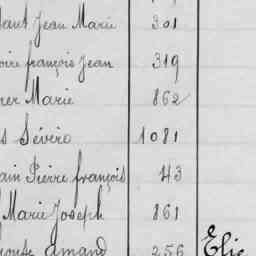 Jean Marie 301
françois Jean 319
Marie 862
Sévère 1081
Pierre françois 43
Marie Joseph 861
amand 256 Elie